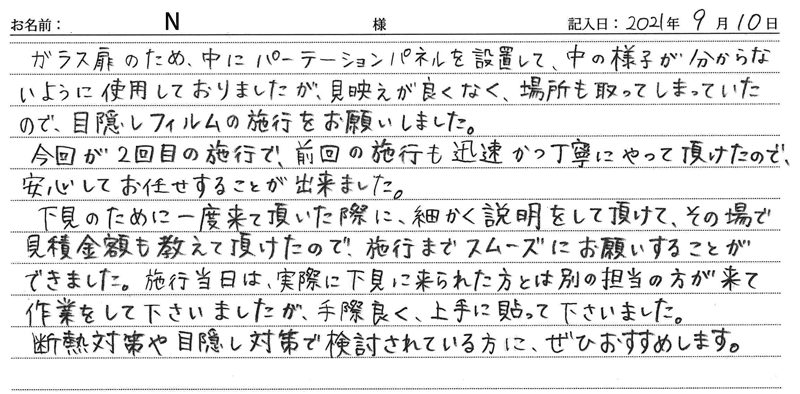 お名前： N 様 記入日：2021年 9月10日
ガラス扉のため、中にパーテーションパネルを設置して、中の様子が分からな
いように使用しておりましたが、見映えが良くなく、場所も取ってしまっていた
ので、目隠しフィルムの施行をお願いしました。
今回が2回目の施行で、前回の施行も迅速かつ丁寧にやって頂けたので、
安心してお任せすることが出来ました。
下見のために一度来て頂いた際に、細かく説明をして頂けて、その場で
見積金額も教えて頂けたので、施行までスムーズにお願いすることが
できました。施行当日は、実際に下見に来られた方とは別の担当の方が来て
作業をして下さいましたが、手際良く、上手に貼って下さいました。
断熱対策や目隠し対策で検討されている方に、ぜひおすすめします。